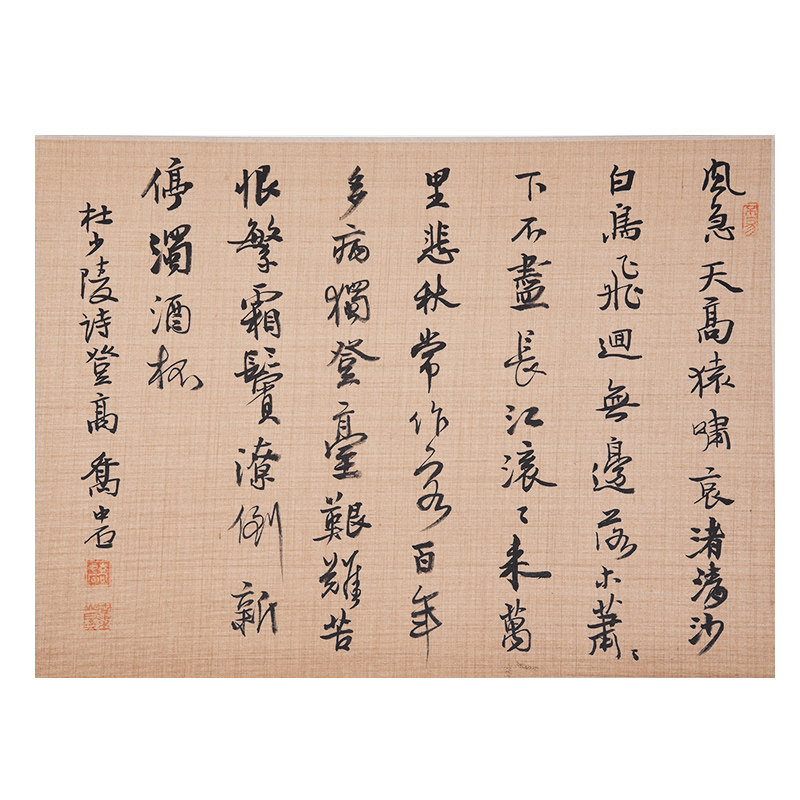 風急天高猿嘯哀渚清沙
白鳥飛迴無邊落木蕭〻
下不盡長江滾〻來萬
里悲秋常作客百年
多病獨登臺艱難苦
恨繁霜鬢潦倒新
停濁酒杯
杜少陵詩登高 喬